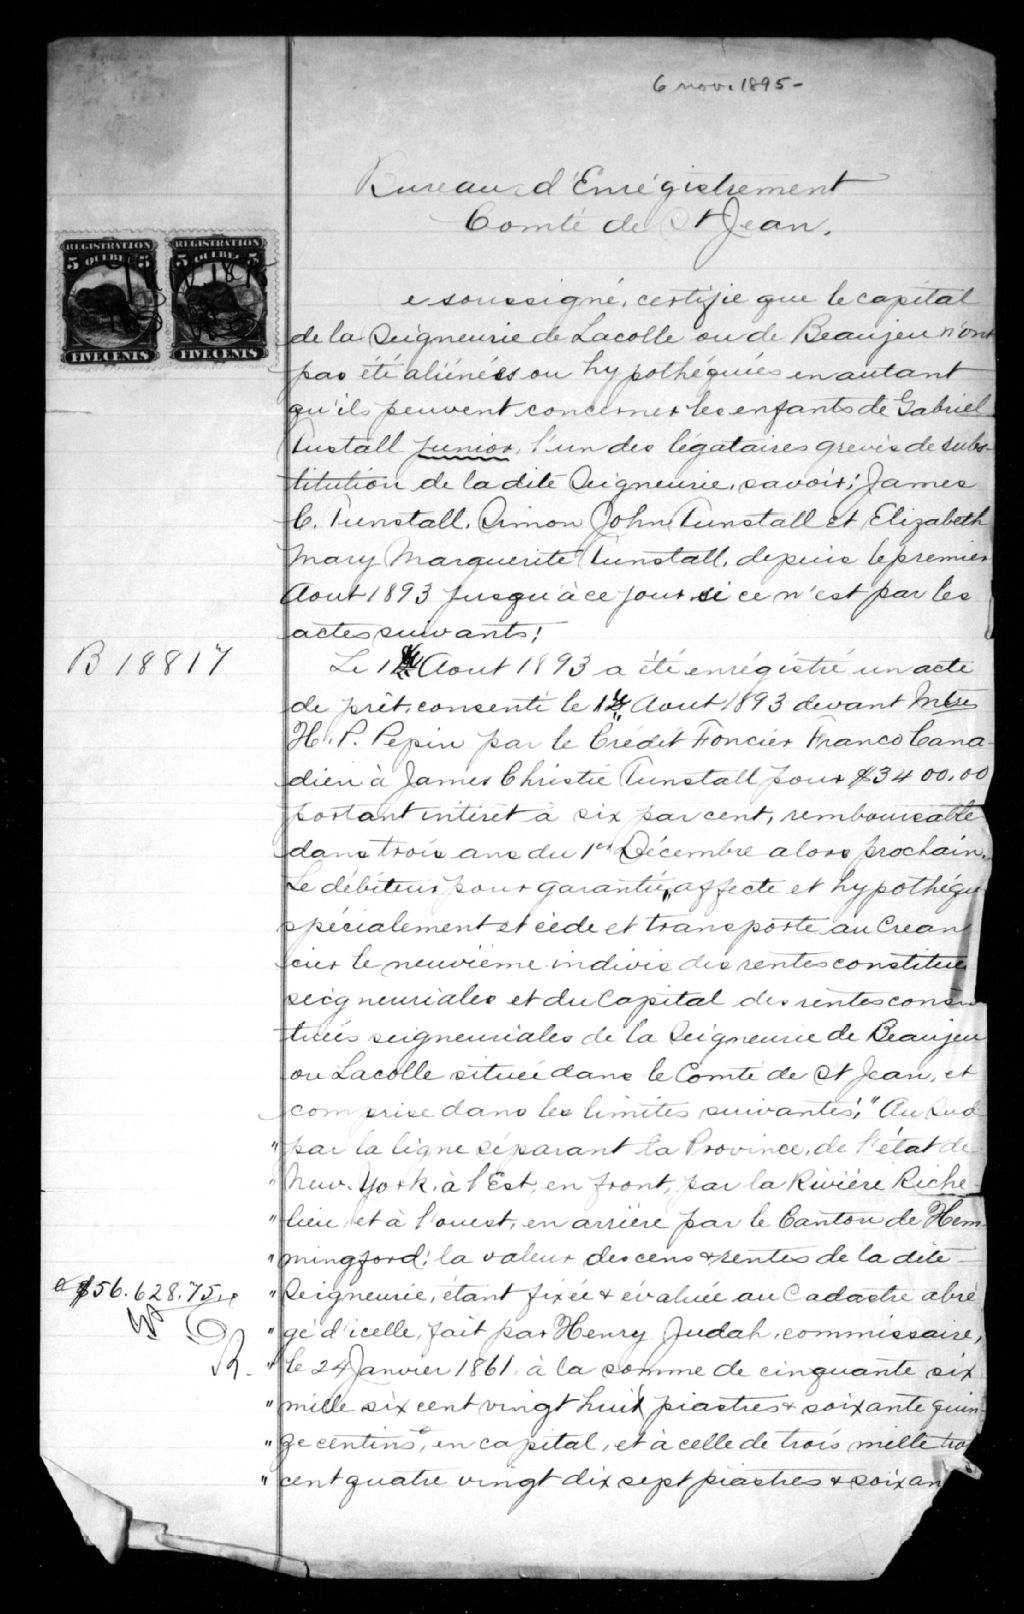 6 nov. 1895-
Bureau d'Enrégistrement
Comté de St Jean.
REGISTRATION
5 QUEBEC 5
FIVE CENTS
REGISTRATION
5 QUEBEC 5
FIVE CENTS
e soussigné, certifie que le capital
de la Seigneurie de Lacolle ou de Beaujeu n'ont
pas été aliénées ou hypothéquiés en autant
qu'ils peuvent concerner les enfants de Gabriel
Tustall junior, l'un des légataires grevés de subs-
titution de la dite Seigneurie, savoir; James
C. Tunstall, Simon John Tunstall et Elizabeth
Mary Marguerite Tunstall, depuis le premier
Aout 1893 jusqu'à ce jour si ce n'est par les
actes suivants;
B 18817
Le Aout 1893 a été enrégistré un acte
de prêt, consenti le Aout 1893 devant Mtre
H. P. Pepin par le Crédit Foncier Franco Cana-
dien à James Christie Tunstall pour $3400.00
portant intérêt à six par cent, remboursable
dans trois ans du 1er Décembre alors prochain.
Le débiteur pour garantie, affecte et hypothéque
spécialement et cède et transporte au Crean
cier le neuvième indivis des rentes constitue
seigneuriales et du Capital des rentes cons
tuées seigneuriales de la Seigneurie de Beaujeu
ou Lacolle située dans le Comté de St Jean, et
comprise dans les limites suivantes; "Au Sud
" par la ligne séparant la Province, de l'état de
" New-York, à l'Est, en front, par la Rivière Riche-
" lieu, et à l'ouest, en arrière par le Canton de Hem-
" mingford; la valeur des cens & rentes de la dite
$56.628.75
" Seigneurie, étant fixée & évaluée au Cadastre abré
" gé d'icelle, fait par Henry Judah, commissaire,
R.
" le 24 Janvier 1861, à la somme de cinquante six
" mille six cent vingt huit piastres & soixante quin-
" ze centins, en capital, et à celle de trois mille troi
" cent quatre vingt dix sept piastres & soixan